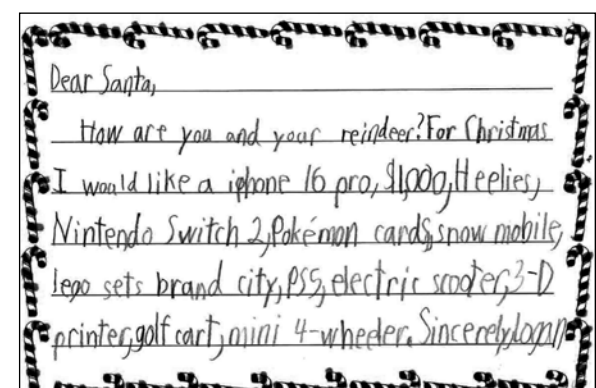 Dear Santa,
How are you and your reindeer? For Christmas
I would like a iphone 16 pro, $1,000, Heelies,
Nintendo Switch 2, Pokémon cards, snow mobile,
lego sets brand city, PS5, electric scooter, 3-D
printer, golf cart, mini 4-wheeler. Sincerely, logan